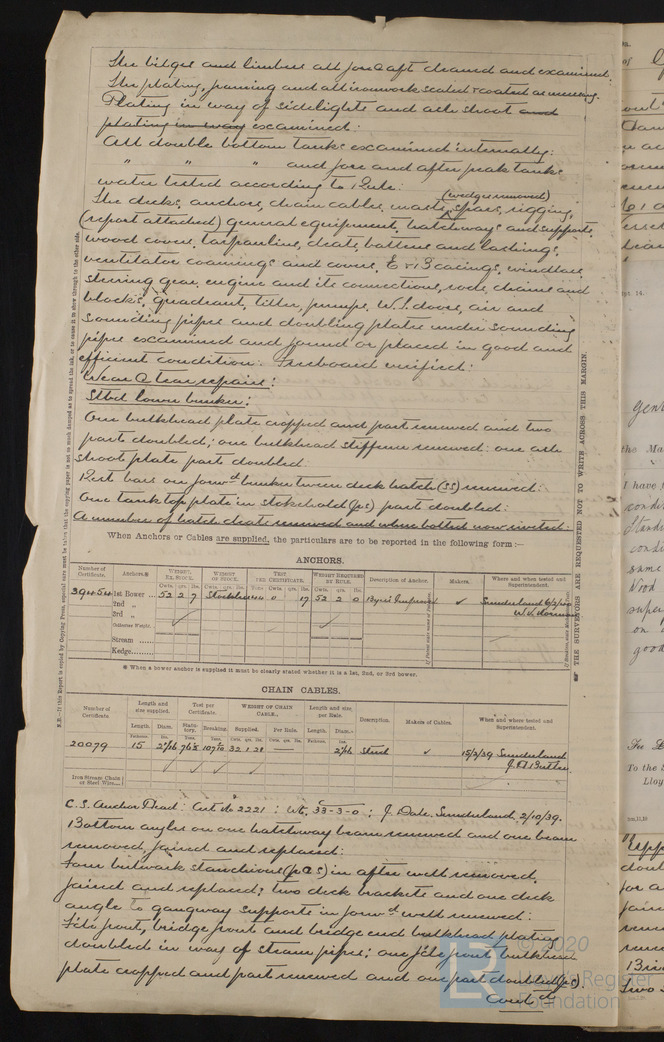 The bilges and limbers all fore & aft cleaned and examined.
The plating, framing and all ironwork scaled & coated as necessary.
Plating in way of sidelights and ash shoot and
plating in way examined:
All double bottom tanks examined internally:
" " " and fore and after peak tanks
water tested according to Rule:
(wedges removed)
The decks, anchors, chain cables, masts, spars, rigging,
(report attached) general equipment, hatchways and supports,
wood covers, tarpaulins, cleats, battens and lashings,
ventilator coamings and covers, E & B casings, windlass,
steering gear, engine and its connections, rods, chains and
blocks, quadrant, tiller, pumps, W.T. doors, air and
sounding pipes and doubling plates under sounding
pipes examined and found or placed in good and
efficient condition: Freeboard verified:
Wear & Tear repairs:
Stbd lower bunker:
One bulkhead plate cropped and part renewed and two
parts doubled; one bulkhead stiffener renewed: one ash
shoot plate part doubled
Rest bars on forwd bunker tween deck hatch (SS) renewed:
One tank top plate in stokehold (ps) part doubled:
A number of hatch cleats renewed and where bolted now riveted:
When Anchors or Cables are supplied, the particulars are to be reported in the following form :—
ANCHORS.
Number of Certificate. Anchors.* WEIGHT, EX. STOCK. WEIGHT OF STOCK. TEST PER CERTIFICATE. WEIGHT REQUIRED BY RULE. Description of Anchor. Makers. Where and when tested and Superintendent.
Cwts. qrs. lbs. Cwts. qrs. lbs. Tons Cwts. qrs. lbs. Cwts. qrs. lbs.
1st Bower ... 52 2 7 Stockless 0 17 52 2 0 Byers Improved ✓ Sunderland
2nd "
3rd "
Collective Weight.
Stream ......
Kedge..........
* When a bower anchor is supplied it must be clearly stated whether it is a 1st, 2nd, or 3rd bower.
CHAIN CABLES.
Number of Certificate Length and size supplied. Test per Certificate. WEIGHT OF CHAIN CABLE. Length and size, per Rule. Description. Makers of Cables. When and where tested and Superintendent.
Length. Diam. Statutory. Breaking. Supplied. Per Rule. Length. Diam.
Fathoms. Ins. Tons. Tons. Cwts. qrs. lbs. Cwts. qrs. lbs. Fathoms. Ins.
20079 15 32 1 21 — Stud ✓ 15/2/39 Sunderland
Iron Stream Chain or Steel Wire...
C.S. Anchor Head: Cert No 2221 : Wt. 33-3-0 ; J. Dale. Sunderland, 2/10/39.
Bottom angles on one hatchway beam renewed and one beam
removed, faired and replaced:
Four bulwark stanchions (p & s) in after well removed,
faired and replaced; two deck brackets and one deck
angle to gangway supports in forwd well renewed:
F'cle front, bridge front and bridge end bulkhead plating
doubled in way of steam pipes; one f'cle front bulkhead
plate cropped and part renewed and one part doubled (ps)
Contd
N.B.—If this Report is copied by Copying Press, especial care must be taken that the copying paper is not so much damped as to spread the ink, or to cause it to show through to the other side.
THE SURVEYORS ARE REQUESTED NOT TO WRITE ACROSS THIS MARGIN.
© 2020
Lloyd's Register
Foundation
LR
the Ma
I have
same
Wood
on
good
To the
Lloy